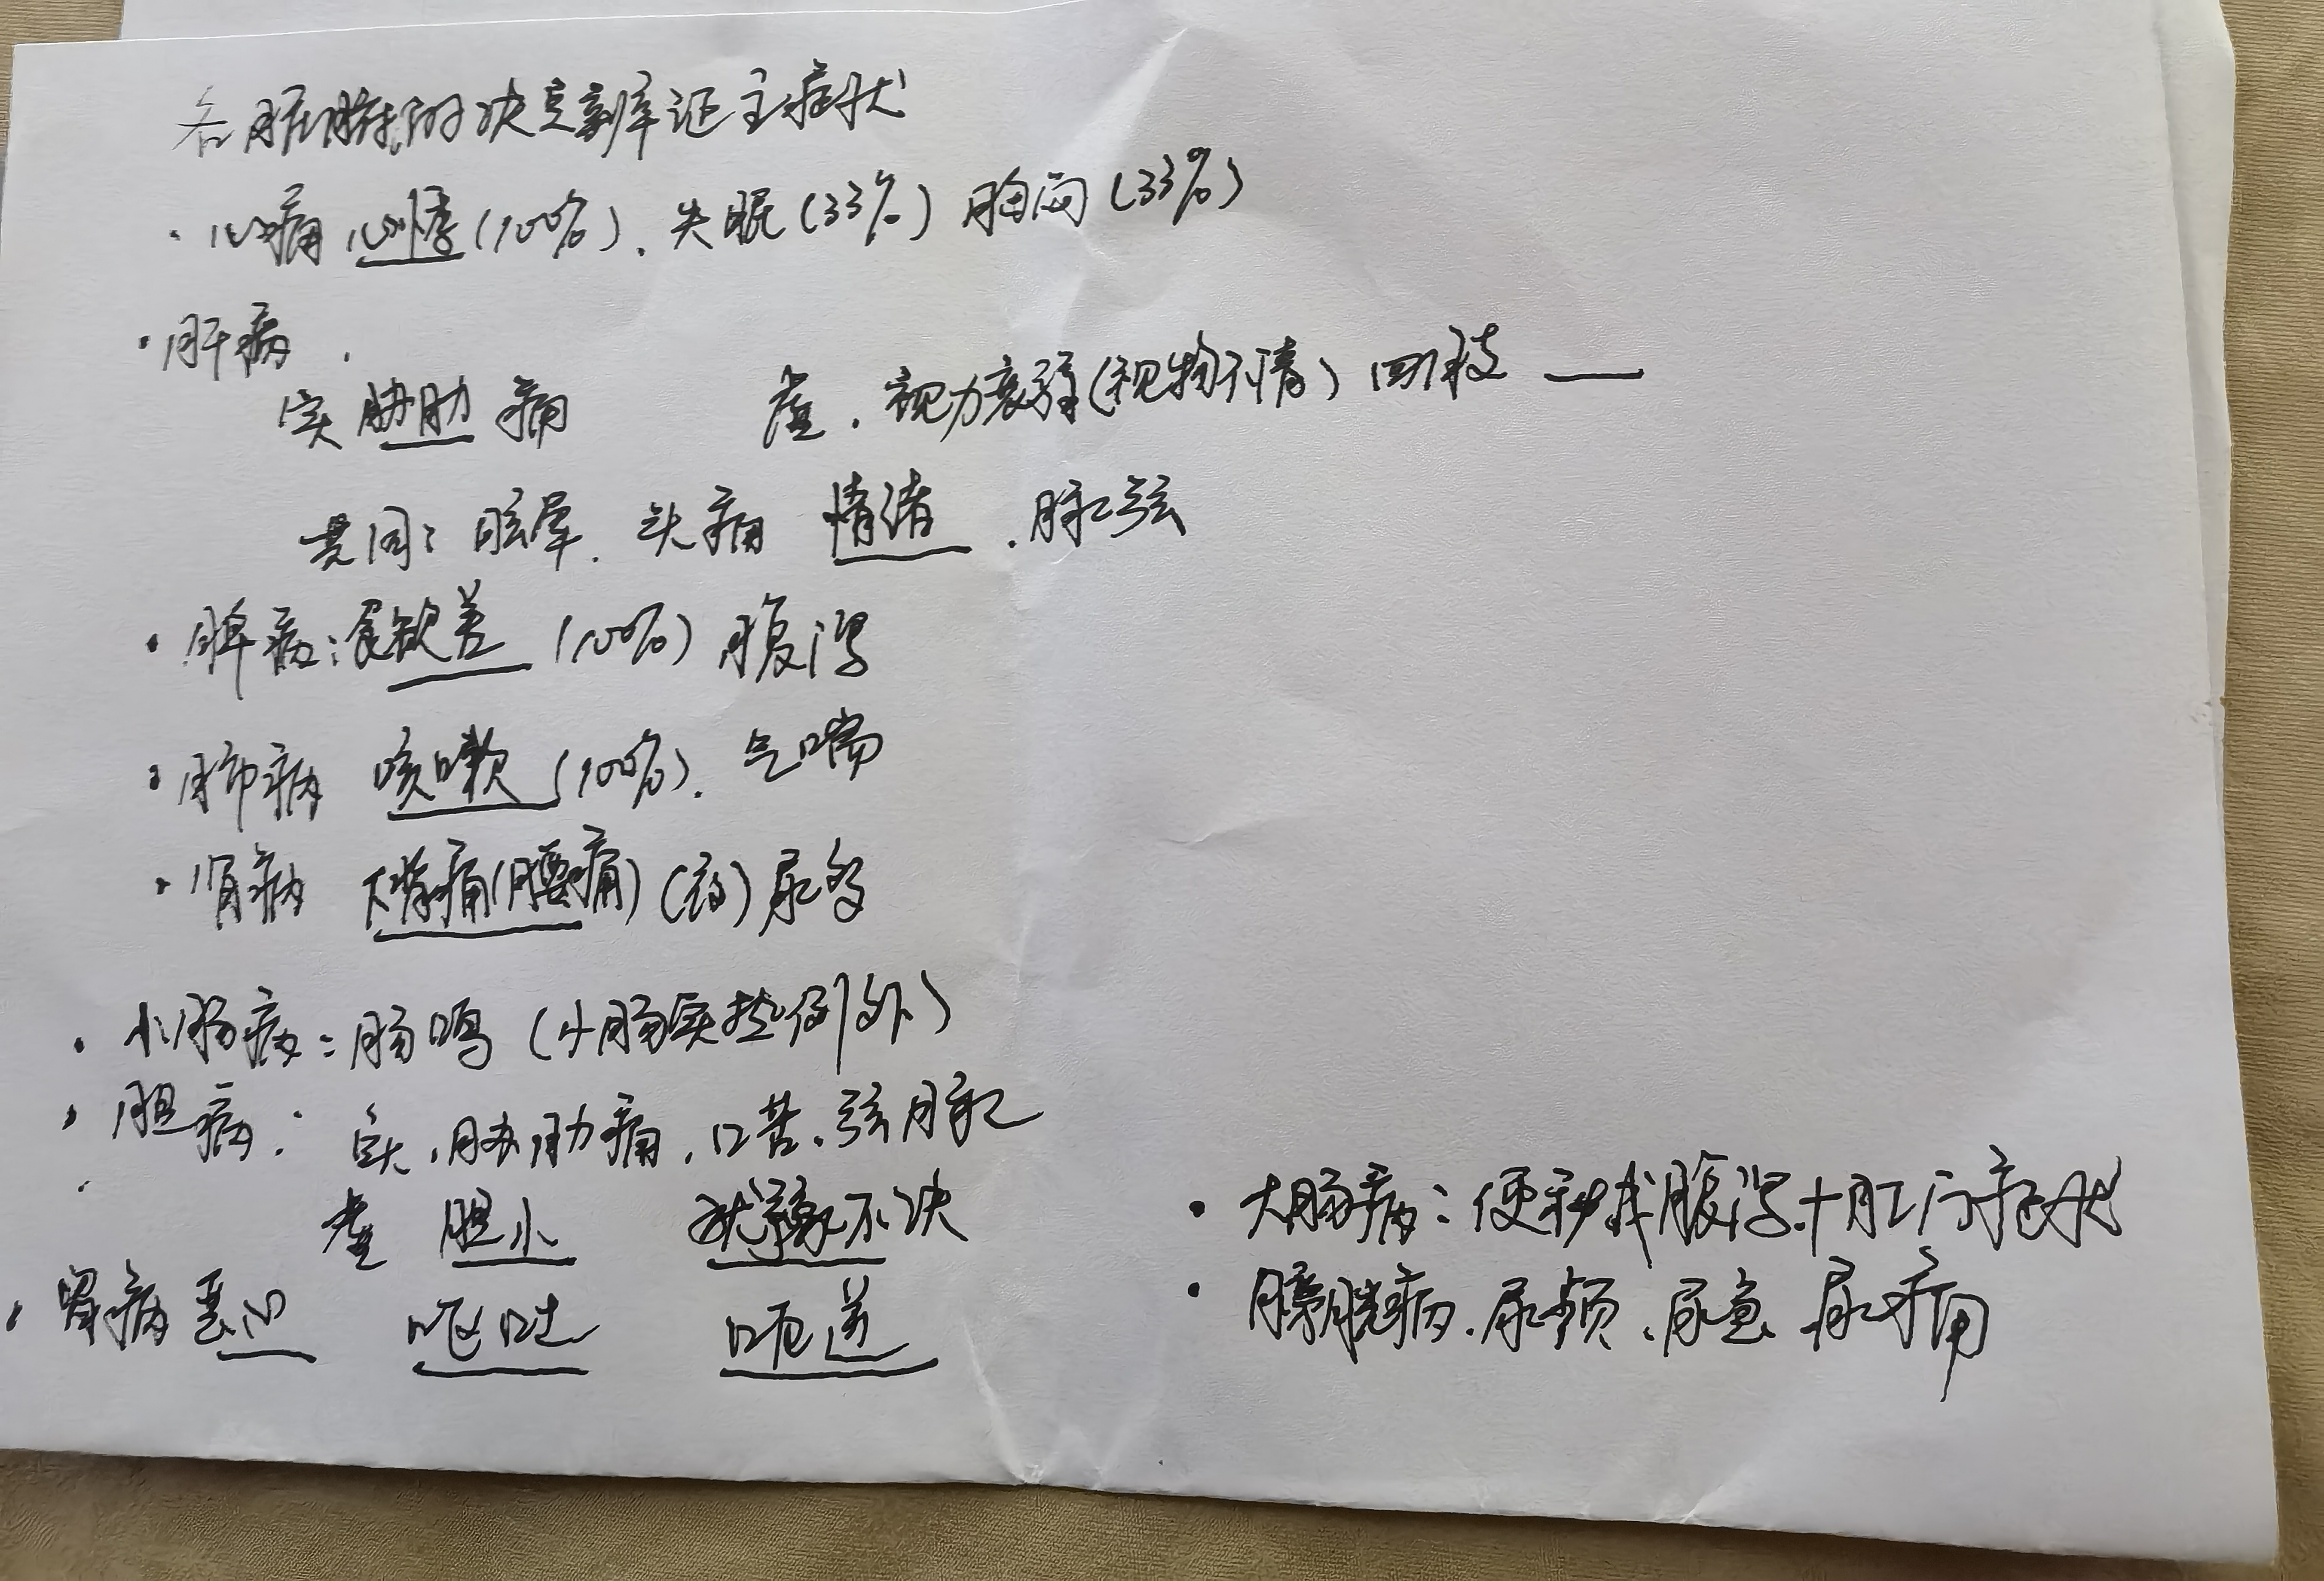 各脏腑的决定辨证主症状
· 心病 心悸(100%)、失眠(33%) 胸闷(33%)
· 肝病.
实 胁肋痛 虚. 视力衰弱(视物不清) 四肢 —
共同: 眩晕. 头痛 情绪. 脉弦
· 脾病: 食欲差 (100%) 腹泻
· 肺病 咳嗽 (100%). 气喘
· 肾病 下背痛(腰痛) (夜)尿多
· 小肠病: 肠鸣 (小肠实热例外)
· 胆病: 实. 胁肋痛. 口苦. 弦脉
虚 胆小 犹豫不决
· 胃病 恶心 呕吐 呃逆
· 大肠病: 便秘或腹泻.+肛门症状
· 膀胱病. 尿频、尿急、尿痛